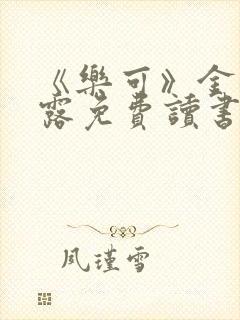 《樂可》全
露免費讀書
風瑾雪